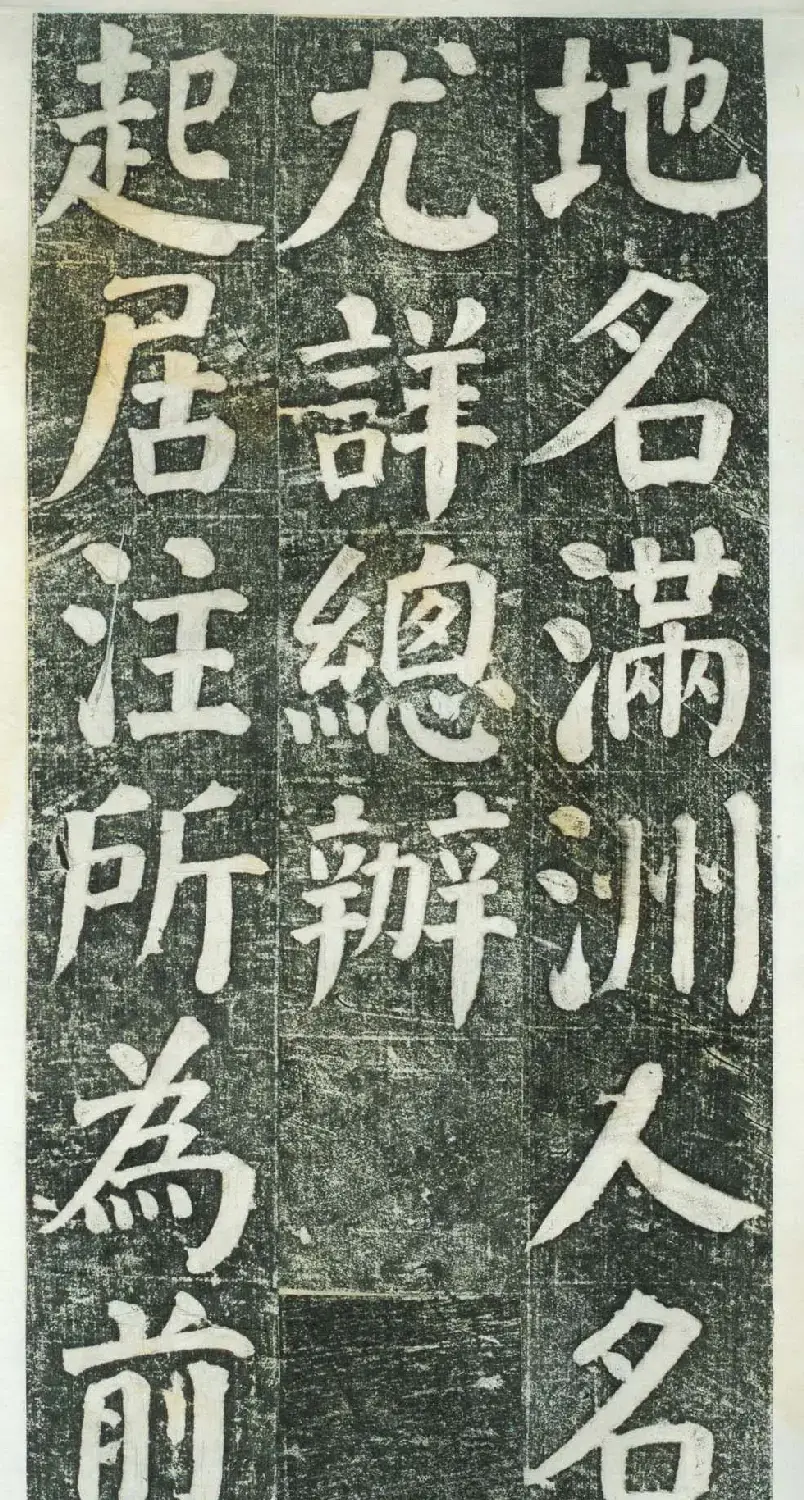 地名滿洲人名
尤詳總辦
起居注所為前